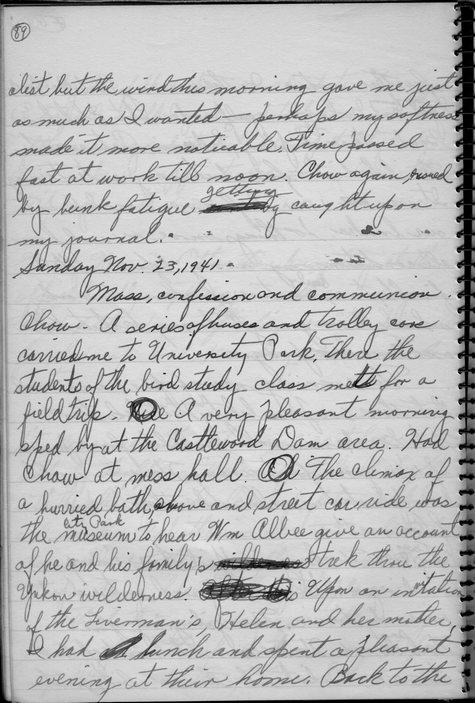 89
clist but the wind this morning gave me just
as much as I wanted — perhaps my softness
made it more noticable. Time passed
fast at work till noon. Chow again
by bunk fatigue getting caught up on
my journal.
Sunday Nov. 23, 1941.
Mass, confession and communion.
Chow - A series of buses and trolley cars
carried me to University Park. There the
students of the bird study class met for a
field trip. A very pleasant morning
sped by at the Castlewood Dam area. Had
Chow at mess hall. The climax of
a hurried bath, shave and street car ride was
the City Park museum to hear Wm Albee give an account
of he and his family's trek thru the
Yukon wilderness. Upon an invitation
of the Liverman's, Helen and her mother,
I had lunch and spent a pleasant
evening at their home. Back to the